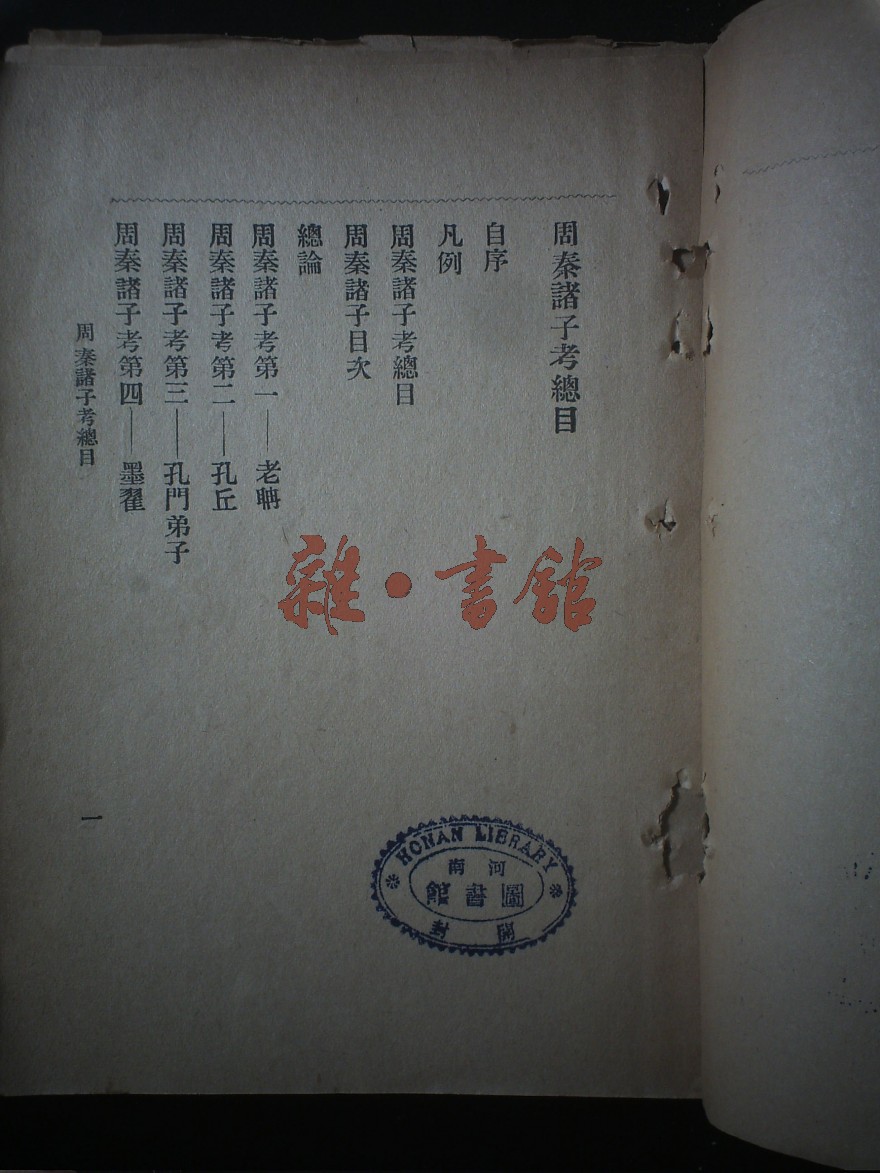 周秦諸子考總目
自序
凡例
周秦諸子考總目
周秦諸子目次
總論
周秦諸子考第一——老聃
周秦諸子考第二——孔丘
周秦諸子考第三——孔門弟子
周秦諸子考第四——墨翟
周秦諸子考總目
一
雜·書館
HONAN LIBRARY
河南
圖書館
開封